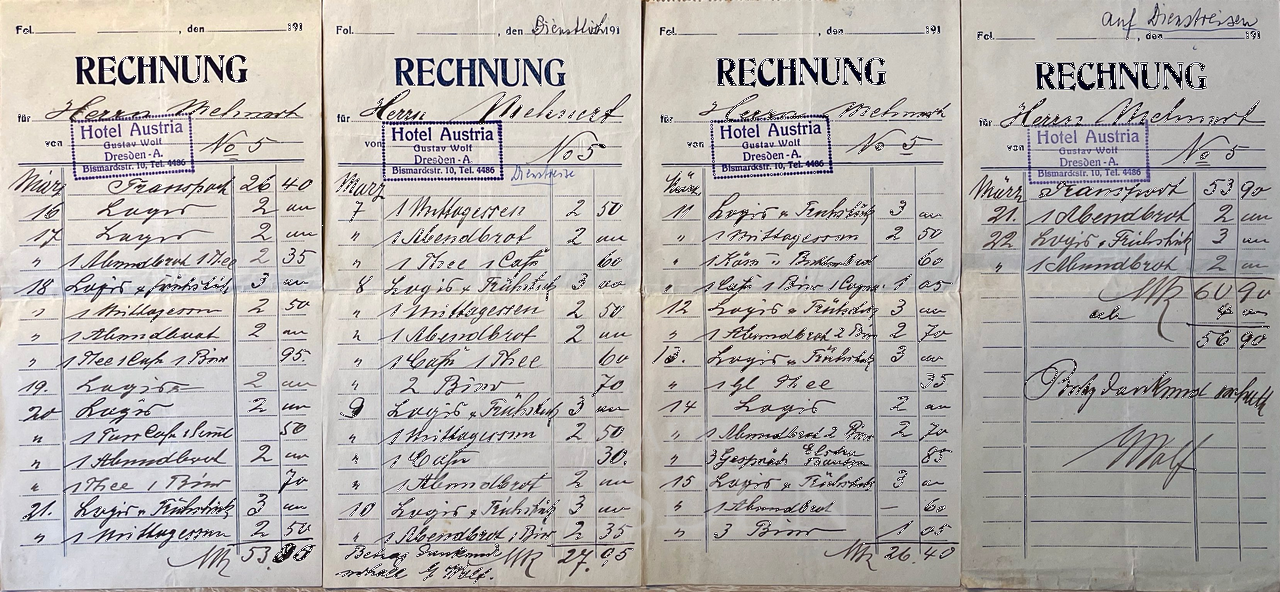 Fol. , den 191
RECHNUNG
für Herrn Mehnert
von Hotel Austria
Gustav Wolf
Dresden-A.
Bismarckstr. 10, Tel. 4486
No 5
März Transport 26 40
16 Logis 2 an
17 Logis 2 an
" 1 Abendbrot 1 Thee 2 35
18 Logis u Frühstück 3 an
" 1 Mittagessen 2 50
" 1 Abendbrot 2 an
" 1 Thee 1 Cafe 1 Bier 95
19. Logis 2 an
20 Logis 2 an
" 1 Cafe 50
" 1 Abendbrot 2 an
" 1 Thee 1 Bier 70
21. Logis u Frühstück 3 an
" 1 Mittagessen 2 50
MK 53.
Fol. , den Dienstlich 191
RECHNUNG
für Herrn Mehnert
von Hotel Austria
Gustav Wolf
Dresden-A.
Bismarckstr. 10, Tel. 4486
No 5
Dienstreise
März
7 1 Mittagessen 2 50
" 1 Abendbrot 2 an
" 1 Thee 1 Cafe 60
8 Logis u Frühstück 3 00
" 1 Mittagessen 2 50
" 1 Abendbrot 2 an
" 1 Cafe 1 Thee 60
" 2 Bier 70
9 Logis u Frühstück 3 an
" 1 Mittagessen 2 50
" 1 Cafe 30.
" 1 Abendbrot 2 an
10 Logis u Frühstück 3 an
" 1 Abendbrot 1 Bier 2 35
MK 27.05
Betrag dankend
erhalt G Wolf.
Fol. , den 191
RECHNUNG
für Herrn Mehnert
von Hotel Austria
Gustav Wolf
Dresden-A.
Bismarckstr. 10, Tel. 4486
No 5
März
11 Logis u Frühstück 3 an
" 1 Mittagessen 2 50
" 1 Käse u 60
" 1 Cafe 1 Bier 1 Cognac 1 05
12 Logis u Frühstück 3 an
" 1 Abendbrot 2 Bier 2 70
13. Logis u Frühstück 3 an
" 1 gl Thee 35
14 Logis 2 an
" 1 Abendbrot 2 Bier 2 70
" 3 Gespräch
15 Logis u Frühstück 3 an
" 1 Abendbrot – 60
" 3 Bier 1 05
MK 26.40
auf Dienstreisen
Fol. , den 191
RECHNUNG
für Herrn Mehnert
von Hotel Austria
Gustav Wolf
Dresden-A.
Bismarckstr. 10, Tel. 4486
No 5
März Transport 53 90
21. 1 Abendbrot 2 an
22 Logis u Frühstück 3 an
" 1 Abendbrot 2 an
MK 60 90
56 90
Betrag dankend erhalt
Wolf